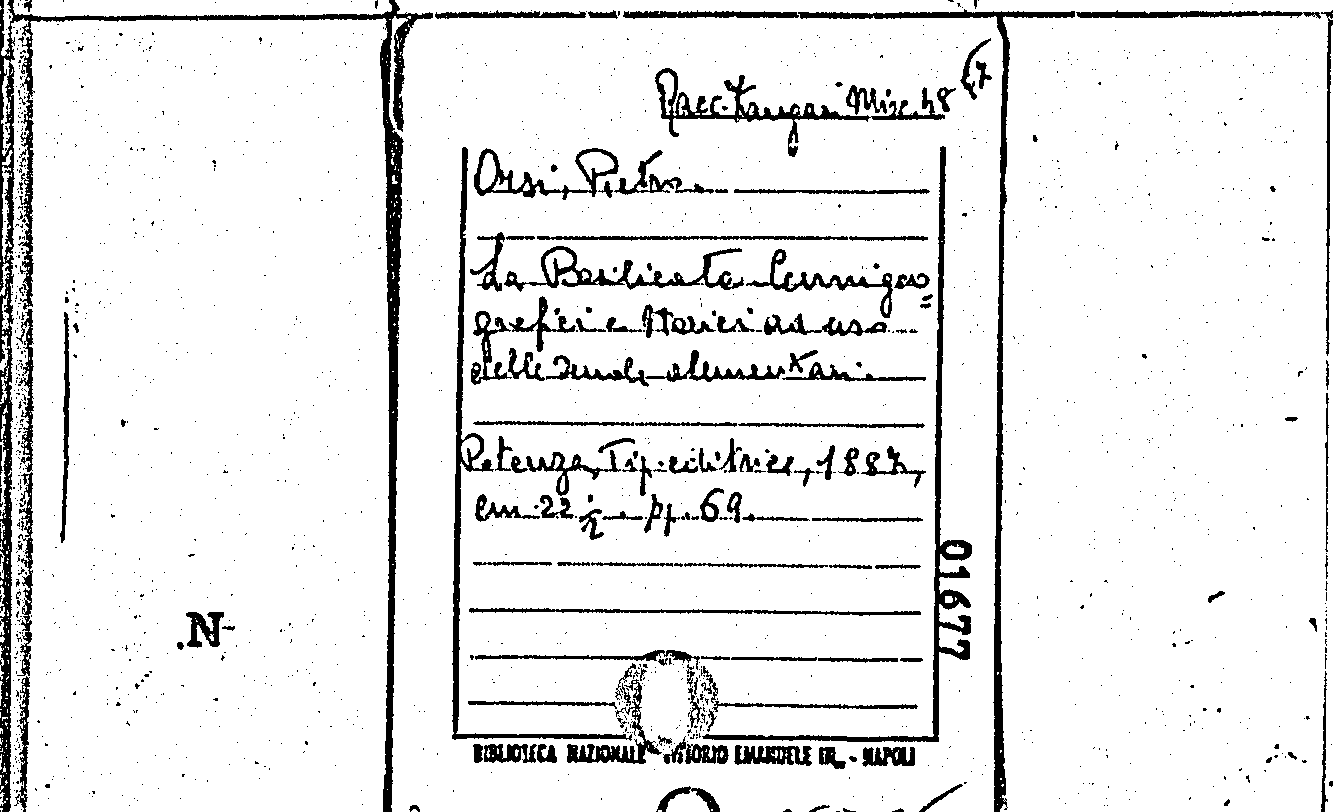 Racc. Zangari Misc. 48 (7
Orsi, Pietro.
La Basilicata. Cenni geo=
grafici e storici ad uso
delle scuole elementari.
Potenza, Tip. editrice, 1887,
cm. 22 ½. pp. 69.
01677
.N-
BIBLIOTECA NAZIONALE VITTORIO EMANUELE III - NAPOLI